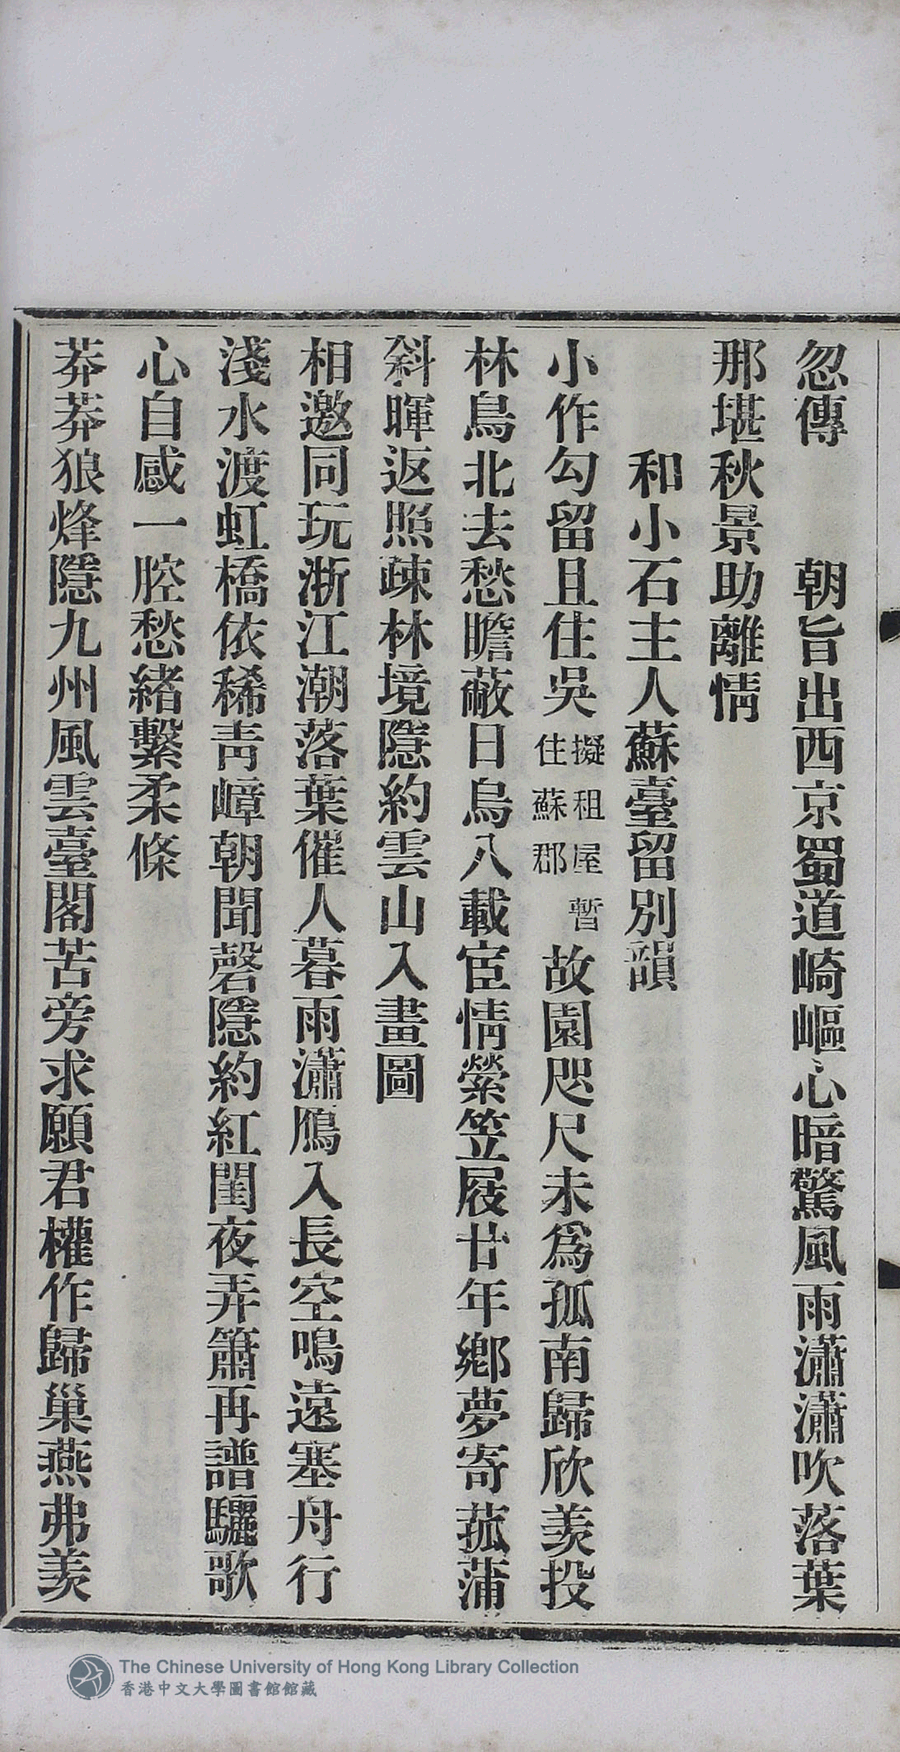 忽傳　朝旨出西京蜀道崎嶇心暗驚風雨瀟瀟吹落葉
那堪秋景助離情
和小石主人蘇臺留別韻
小作勾留且住吳擬租屋暫住蘇郡故園咫尺未爲孤南歸欣羡投
林鳥北去愁瞻蔽日烏八載宦情縈笠屐廿年鄉夢寄菰蒲
斜暉返照疎林境隱約雲山入畫圖
相邀同玩浙江潮落葉催人暮雨瀟鴈入長空鳴遠塞舟行
淺水渡虹橋依稀靑嶂朝聞磬隱約紅閨夜弄簫再譜驪歌
心自感一腔愁緒繫柔條
莽莽狼烽隱九州風雲臺閣苦旁求願君權作歸巢燕弗羡
The Chinese University of Hong Kong Library Collection
香港中文大學圖書館館藏